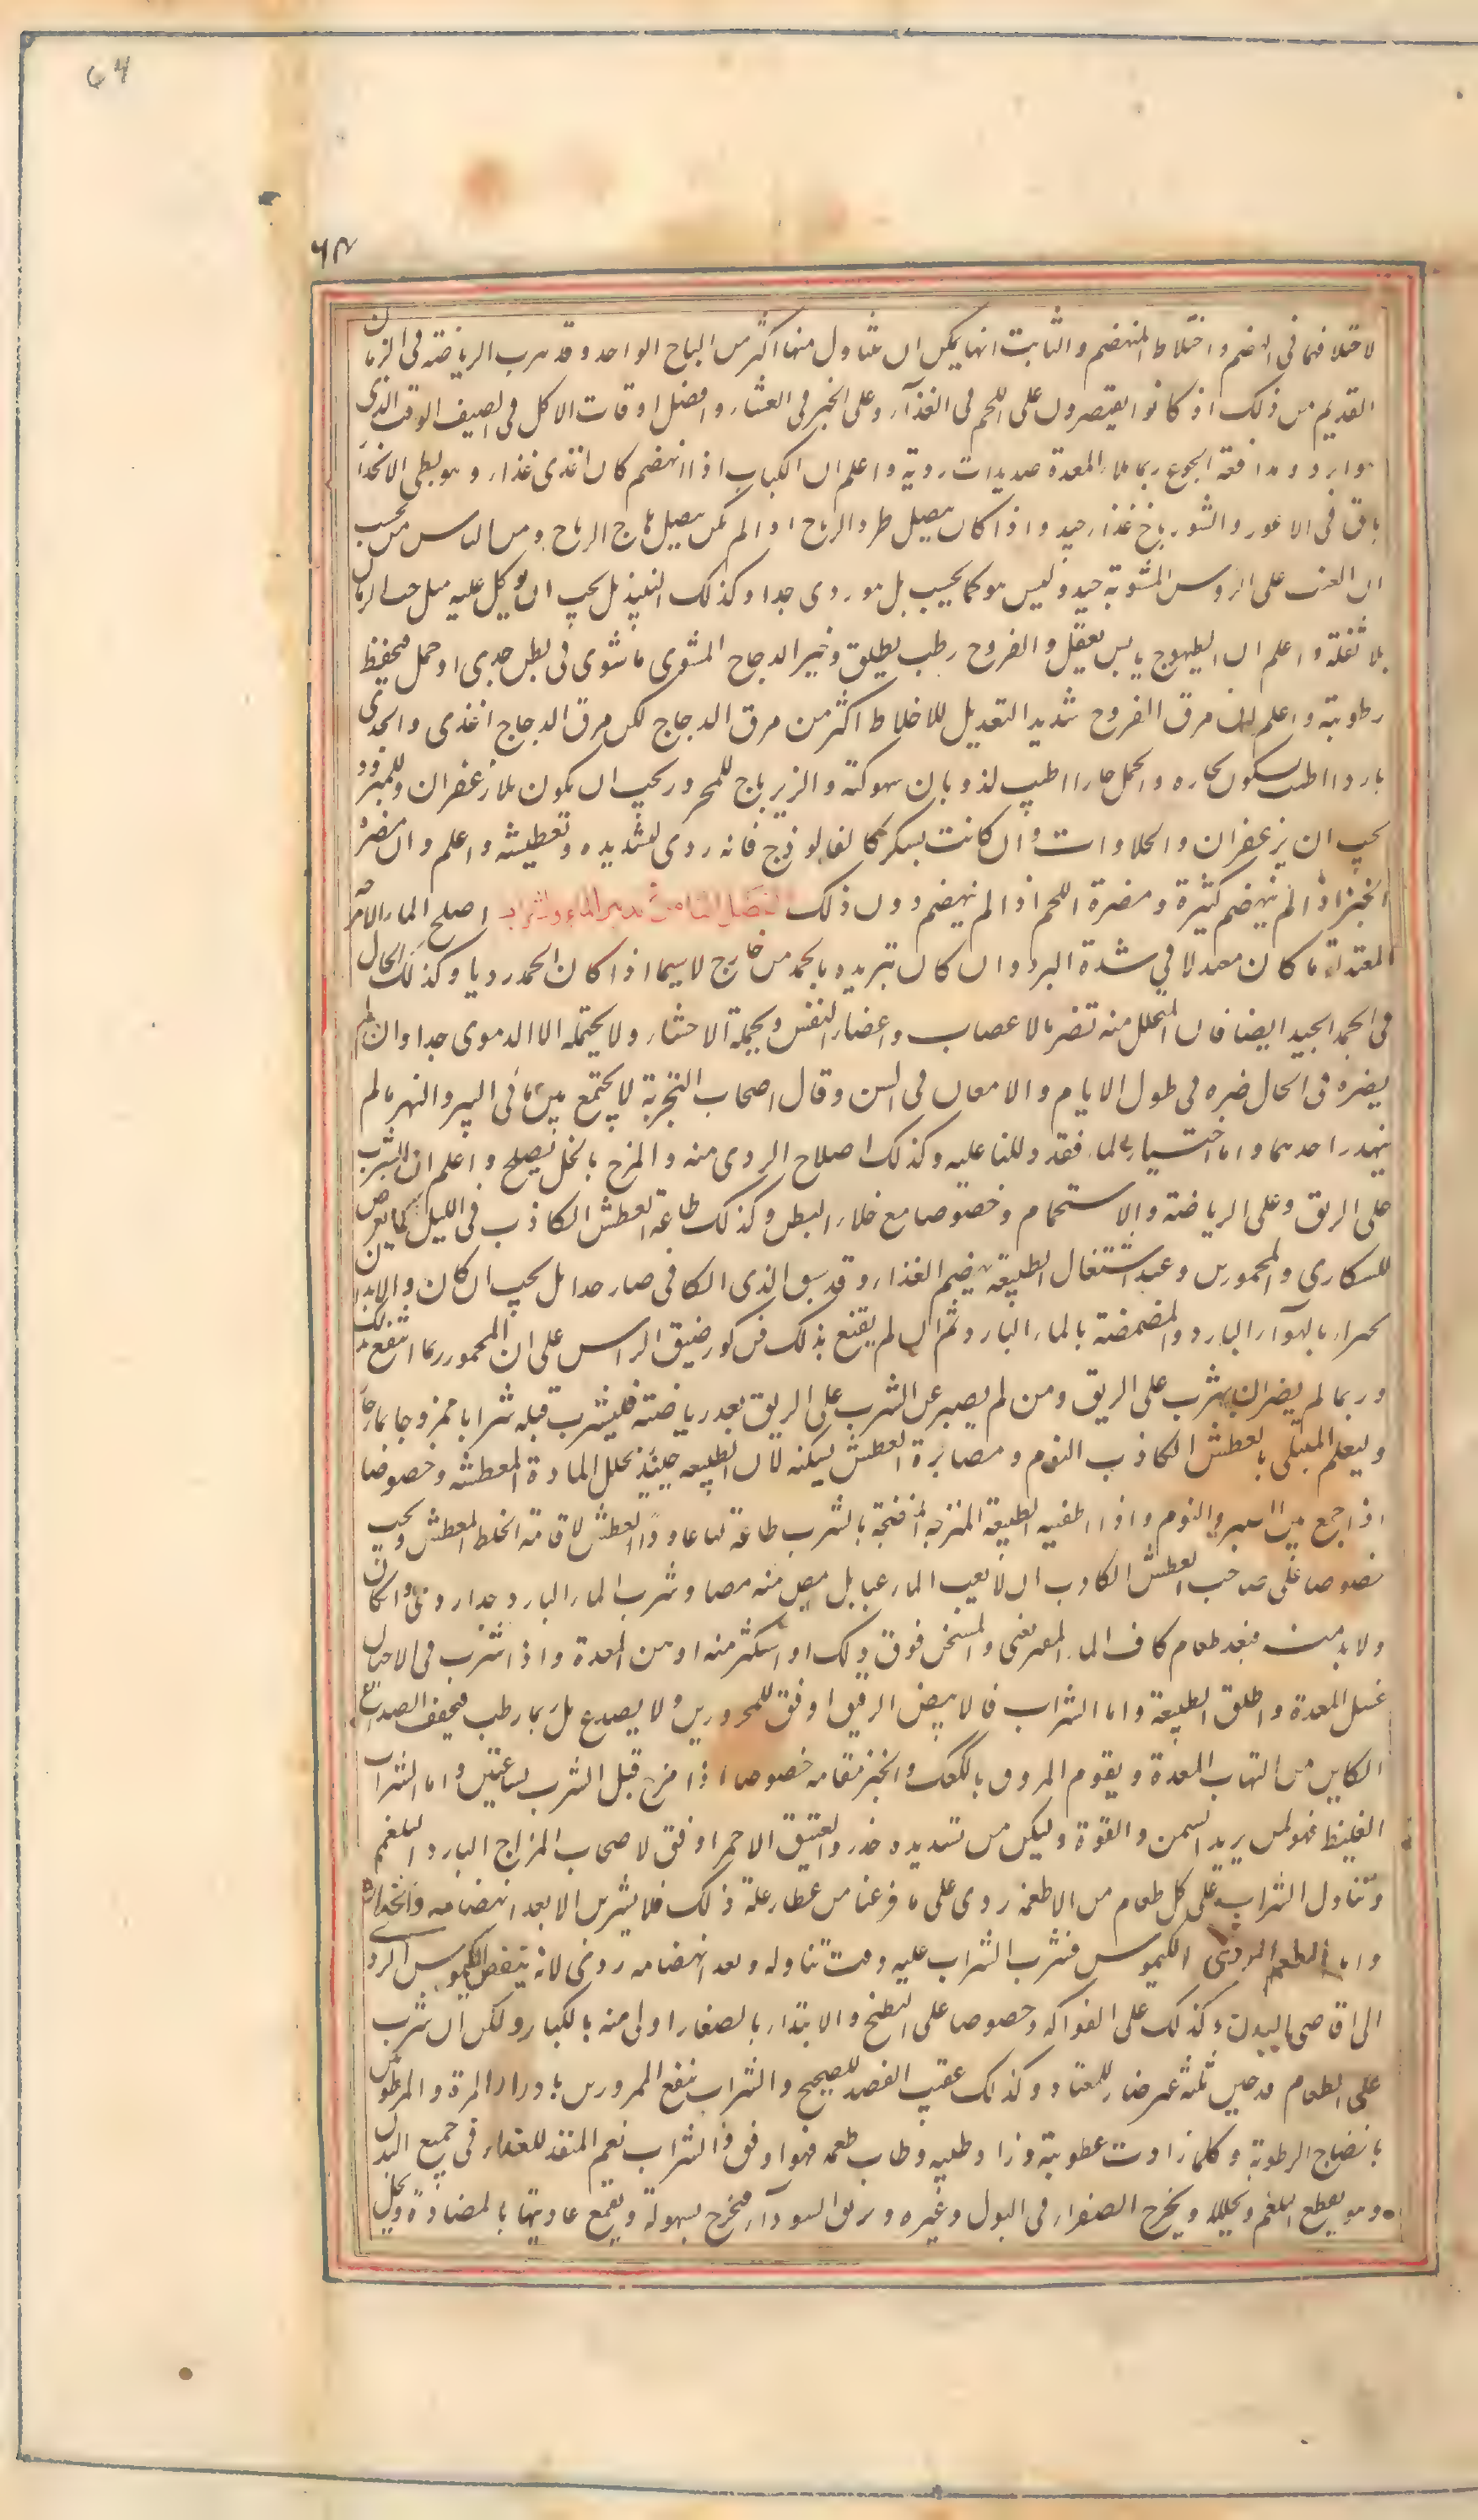 64
٦٣
لاختلافها فى الهضم واختلاط المنهضم والثابت انها يمكن ان يتناول منها اكثر من الباج الواحد وقد هرب الرياضة فى الزمان
القديم من ذلك اذ كانوا يقتصرون على اللحم فى الغذآء وعلى الخبز فى العشاء وافضل اوقات الاكل فى الصيف الوقت الذى
هو ابرد ومدافعة الجوع ربما ملاء المعدة صديدات ردية واعلم ان الكباب اذا انهضم كان اغذى غذاء وهو بطى الانحدار
باق فى الاعور والشورباخ غذاء جيد واذا كان ببصل طرد الرياح واذا لم يكن ببصل هاج الرياح ومن الناس من يحسب
ان العنب على الروس المشوية جيد وليس هو كما يحسب بل هو ردى جدا وكذلك النبيذ بل يجب ان يوكل عليه مثل حب الرمان
بلا ثفله واعلم ان الطيهوج يابس يعقل والفروج رطب يطلق وخير الدجاج المشوى ما شوى فى بطن جدى او حمل فيحفظ
رطوبته واعلم ان مرق الفروج شديد التعديل للاخلاط اكثر من مرق الدجاج لكن مرق الدجاج اغذى والجدى
باردا اطيب لسكون بخاره والحمل حارا اطيب لذوبان سهوكته والزيرباج للمحرور يجب ان يكون بلا زعفران وللمبرود
يجب ان يزعفران والحلاوات وان كانت بسكر كالفالوذج فانه ردى لتشديده وتعطيشه واعلم وان مضرة
الخبز اذا لم ينهضم كثيرة ومضرة اللحم اذا لم ينهضم دون ذلك الفصل الثامن فى تدبير الماء والشراب اصلح الماء للامزجة
المعتدلة ما كان معتدلا فى شدة البرد وان كان تبريده بالجمد من خارج لاسيما اذا كان الجمد رديا وكذلك الحال
فى الجمد الجيد ايضا فان المتحلل منه تضر بالاعصاب واعضاء النفس وبجملة الاحشاء ولا يحتمله الا الدموى جدا وان لم
يضره فى الحال ضره فى طول الايام والامعان فى السن وقال اصحاب التجربة لا يجتمع بين مأى البير والنهر ما لم
ينحدر احدهما واما اختيار الماء فقد دللنا عليه وكذلك اصلاح الردى منه والمزج بالخل يصلح واعلم ان الشرب
على الريق وعلى الرياضة والاستحمام وخصوصا مع خلاء البطن وكذلك طاعة العطش الكاذب فى الليل كما يعرض
للسكارى والمخمورين وعند اشتغال الطبيعة بهضم الغذاء وقد سبق الذى الكافى ضار جدا بل يجب ان كان ولابد ان
بالهوآء البارد والمضمضة بالماء البارد ثم ان لم يقنع بذلك فمن كوز ضيق الراس على ان المخمور ربما انتفع بذلك
وربما لم يضر ان يشرب على الريق ومن لم يصبر عن الشرب على الريق بعد رياضته فليشرب قبله شرابا ممزوجا بماء حار
وليعلم المبتلى بالعطش الكاذب النوم ومصابرة العطش يسكنه لان الطبيعة حينئذ تحلل المادة المعطشة وخصوصا
اذا جمع بين الصبر والنوم واذا اطفيت الطبيعة المنضجة بالشرب طاعة لها عاود العطش لاقامة الخلط المعطش ويجب
خصوصا على صاحب العطش الكاذب ان لا يعب الماء عبا بل يمص منه مصا وشرب الماء البارد جدا ردى وان كان
ولا بد منه فبعد طعام كاف الماء يغثى والمسخن فوق ذلك اذا استكثر منه اوهن المعدة واذا شرب فى الاحيان
غسل المعدة واطلق الطبيعة واما الشراب فالابيض الرقيق اوفق للمحرورين ولا يصدع بل ربما رطب فيخفف الصداع
الكاين من التهاب المعدة ويقوم المروق بالكعك والخبز مقامه خصوصا اذا مزج قبل الشرب بساعتين واما الشراب
الغليظ فهو لمن يريد السمن والقوة وليكن من تسديده حذر والعتيق الاحمر اوفق لاصحاب المزاج البارد البلغمى
وتناول الشراب على كل طعام من الاطعمة ردى على ما فرغنا من عطاء علة ذلك فلا يشربن الا بعد انهضامه وانحداره
واما الطعم الردى الكيموس فشرب الشراب عليه وقت تناوله وبعد انهضامه ردى لانه ينفض الكيموس الردى
الى اقاصى البدن وكذلك على الفواكه وخصوصا على البطيخ والابتداء بالصغار اولى منه بالكبار ولكن ان شرب
على الطعام قدحين ثلثة غير ضار للمعتاد وكذلك عقيب الفصد للصحيح والشراب ينفع الممرورين بادرار المرة والمرطوبين
بانضاج الرطوبة وكلما زادت عطريته وزاد طيبه وطاب طعمه فهو اوفق والشراب نعم المنفذ للغذاء فى جميع البدن
وهو يقطع البلغم ويحلله ويخرج الصفراء فى البول وغيره ويزلق السودآء فتخرج بسهولة ويقمع عاديتها بالمضادة ويحل